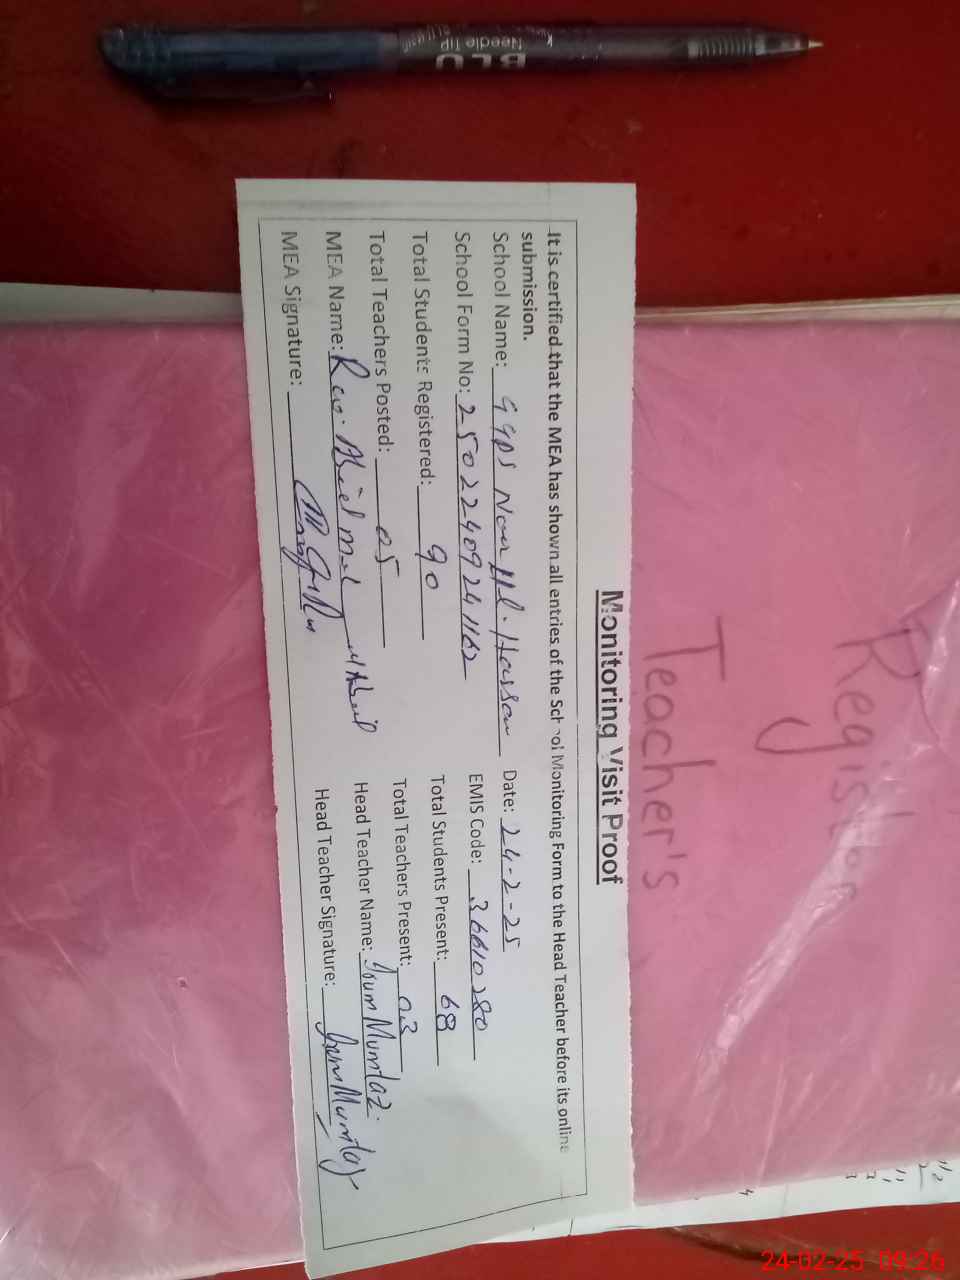 BLU
Needle Tip
Register
Teacher's
Monitoring Visit Proof
It is certified that the MEA has shown all entries of the School Monitoring Form to the Head Teacher before its online
submission.
School Name: GGPS Noor Ul. Hassan Date: 24-2-25
School Form No: 25022409241162 EMIS Code: 36610280
Total Students Registered: 90 Total Students Present: 68
Total Teachers Posted: 05 Total Teachers Present: 03
MEA Name: Head Teacher Name: Irum Mumtaz.
MEA Signature: Head Teacher Signature: Irum Mumtaz
24-02-25 09:26